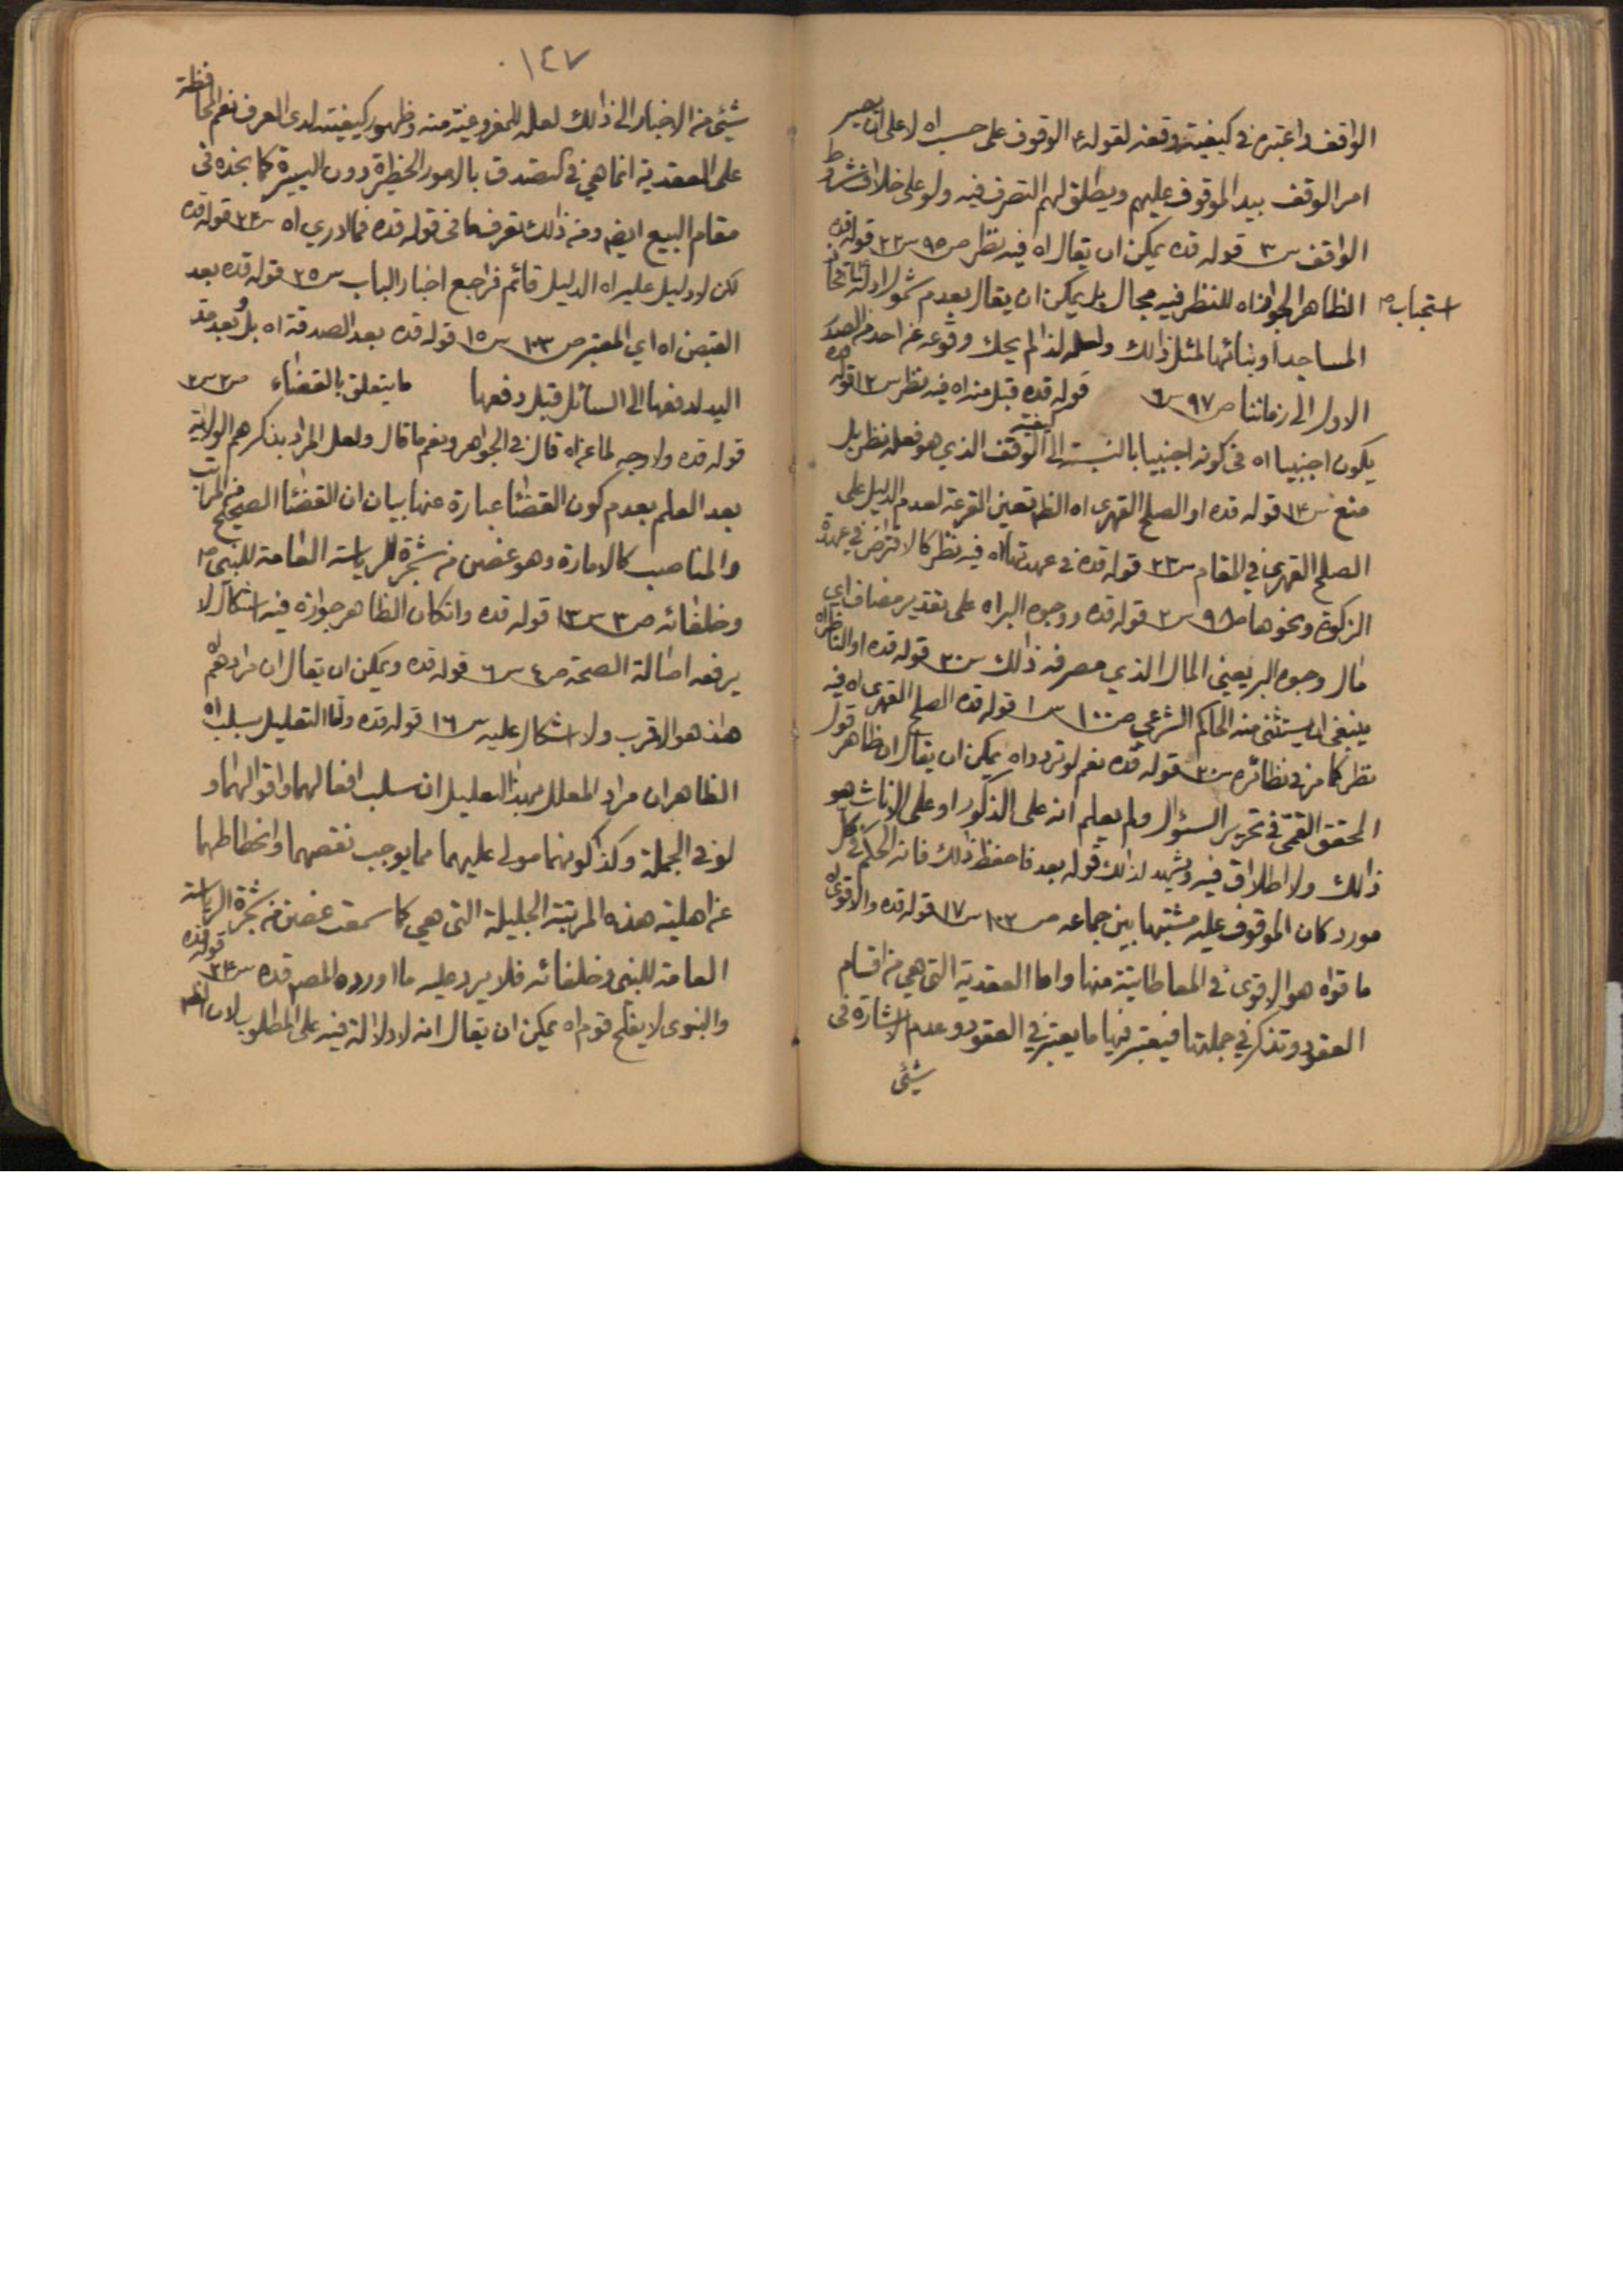 الواقف واعتبره في كيفية وقفه لقوله ع الوقوف على حسب اه لا على ان يصير
امر الوقف بيد الموقوف عليهم ويطلق لهم التصرف فيه ولو على خلاف شروط
الواقف س٣ قوله قده يمكن ان يقال اه فيه نظر ص٩٥ س٢٢ قوله قده
الظاهر الجواز اه للنظر فيه مجال بل يمكن ان يقال بعدم شمول ادلة اتخاذ
استحباب
المساجد او بنائها لمثل ذالك ولعله لذا لم يحك وقوعه عن احد من الصدر
الاول الى زماننا ص٩٧ س٦ قوله قده قبل منه اه فيه نظر س١٢ قوله قده
يكون اجنبيا اه في كونه اجنبيا بالنسبة الى كيفية الوقف الذي هو فعله نظر بل
منع س١٤ قوله قده او الصلح القهرى اه الظ تعين القرعة لعدم الدليل على
الصلح القهرى في المقام س٢٣ قوله قده في عهدتها اه فيه نظر كالاقتراض في عهدة
الزكوة ونحوها ص٩٨ س٢ قوله قده ووجوه البر اه على تقدير مضاف اي
مال وجوه البر يعني المال الذي مصرفه ذالك س٣٠ قوله قده او الناظر اه
ينبغى ان يستثنى منه الحاكم الشرعي ص١٠٠ س١ قوله قده الصلح القهرى اه فيه
نظر كما مر في نظائره س٢٠ قوله قده نعم لو تردد اه يمكن ان يقال ان ظاهر قول
المحقق القمى في تحرير السئوال ولم يعلم انه على الذكور او على الاناث هو
ذالك ولا اطلاق فيه ويشهد لذالك قوله بعد فاحفظ ذالك فانه الحكم في كل
مورد كان الموقوف عليه مشتبها بين جماعه ص١٠٢ س١٧ قوله قده والاقوى اه
ما قواه هو الاقوى في المعاطاتية منها واما العقدية التى هي من اقسام
العقود وتذكر في جملتها فيعتبر فيها ما يعتبر في العقود وعدم الاشارة في
شئى
١٤٧
شئى من الاخبار الى ذالك لعله للمفروغية منه وظهور كيفيته لدى العرف نعم المحافظة
على العقدية انما هي في التصدق بالامور الخطيرة دون اليسيرة كما نجده في
مقام البيع ايض ومن ذالك تعرف ما في قوله قده فما ادري اه س٢٤ قوله قده
لكن لا دليل عليه اه الدليل قائم فراجع اخبار الباب س٢٥ قوله قده بعد
القبض اه اي المعتبر ص١٠٣ س١٥ قوله قده بعد الصدقة اه بل وبعد مد
اليد لدفعها الى السائل قبل دفعها ما يتعلق بالقضاء ص٢ س٢
قوله قده ولا وجه لما عن اه قال في الجواهر ونعم ما قال ولعل المراد بذكرهم الولاية
بعد العلم بعدم كون القضاء عبارة عنها بيان ان القضاء الصحيح من المراتب
والمناصب كالامارة وهو غصن من شجرة الرياسة العامة للنبي ص
وخلفائه ص٣ س١٣ قوله قده وان كان الظاهر جوازه فيه اشكال لا
يرفعه اصالة الصحة ص٤ س٦ قوله قده ويمكن ان يقال ان مرادهم اه
هذا هو الاقرب ولا اشكال عليه س١٦ قوله قده واما التعليل بسلب اه
الظاهر ان مراد المعلل بهذا التعليل ان سلب افعالهما واقوالهما و
لو في الجملة وكذا كونهما مولى عليهما مما يوجب نقصهما وانحطاطهما
عن اهلية هذه المرتبة الجليلة التى هي كما سمعت غصن من شجرة الرياسة
العامة للنبى وخلفائه فلا يرد عليه ما اورده المصـ قده س٢٤ قوله قده
والنبوى لا يفلح قوم اه يمكن ان يقال انه لا دلالة فيه على المطلوب لان